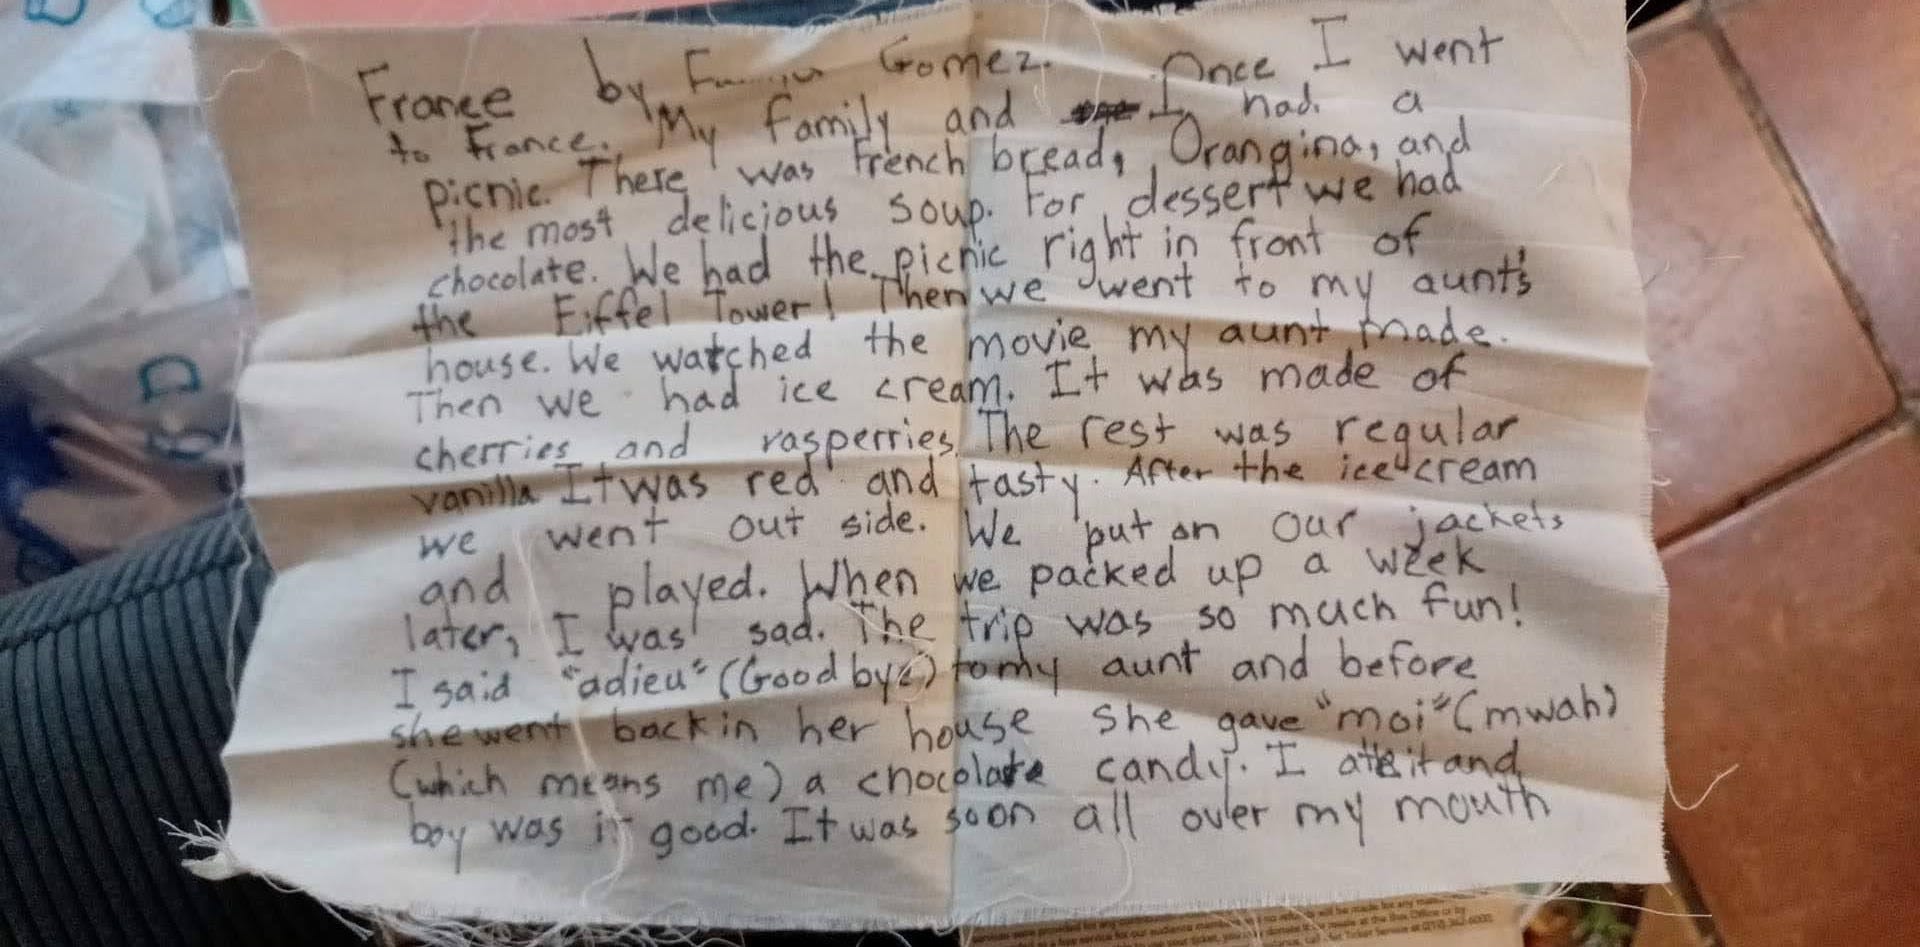 France by Gomez. Once I went
to France. My family and I had a
picnic. There was French bread, Orangina, and
the most delicious soup. For dessert we had
chocolate. We had the picnic right in front of
the Eiffel Tower! Then we went to my aunt's
house. We watched the movie my aunt made.
Then we had ice cream. It was made of
cherries and rasperries. The rest was regular
vanilla It was red and tasty. After the ice cream
we went out side. We put on our jackets
and played. When we packed up a week
later, I was sad. The trip was so much fun!
I said "adieu" (Good bye) to my aunt and before
she went back in her house she gave "moi" (mwah)
(which means me) a chocolate candy. I ate it and
boy was it good. It was soon all over my mouth